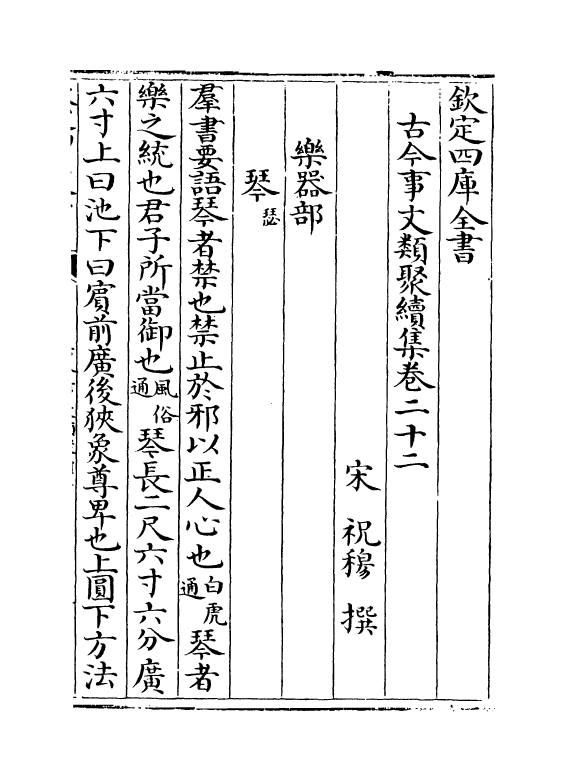 欽定四庫全書
古今事文類聚續集卷二十二
宋 祝穆 撰
樂器部
琴 瑟
羣書要語琴者禁也禁止於邪以正人心也白虎通琴者
樂之統也君子所當御也風俗通琴長二尺六寸六分廣
六寸上曰池下曰賔前廣後狹象尊卑也上圓下方法